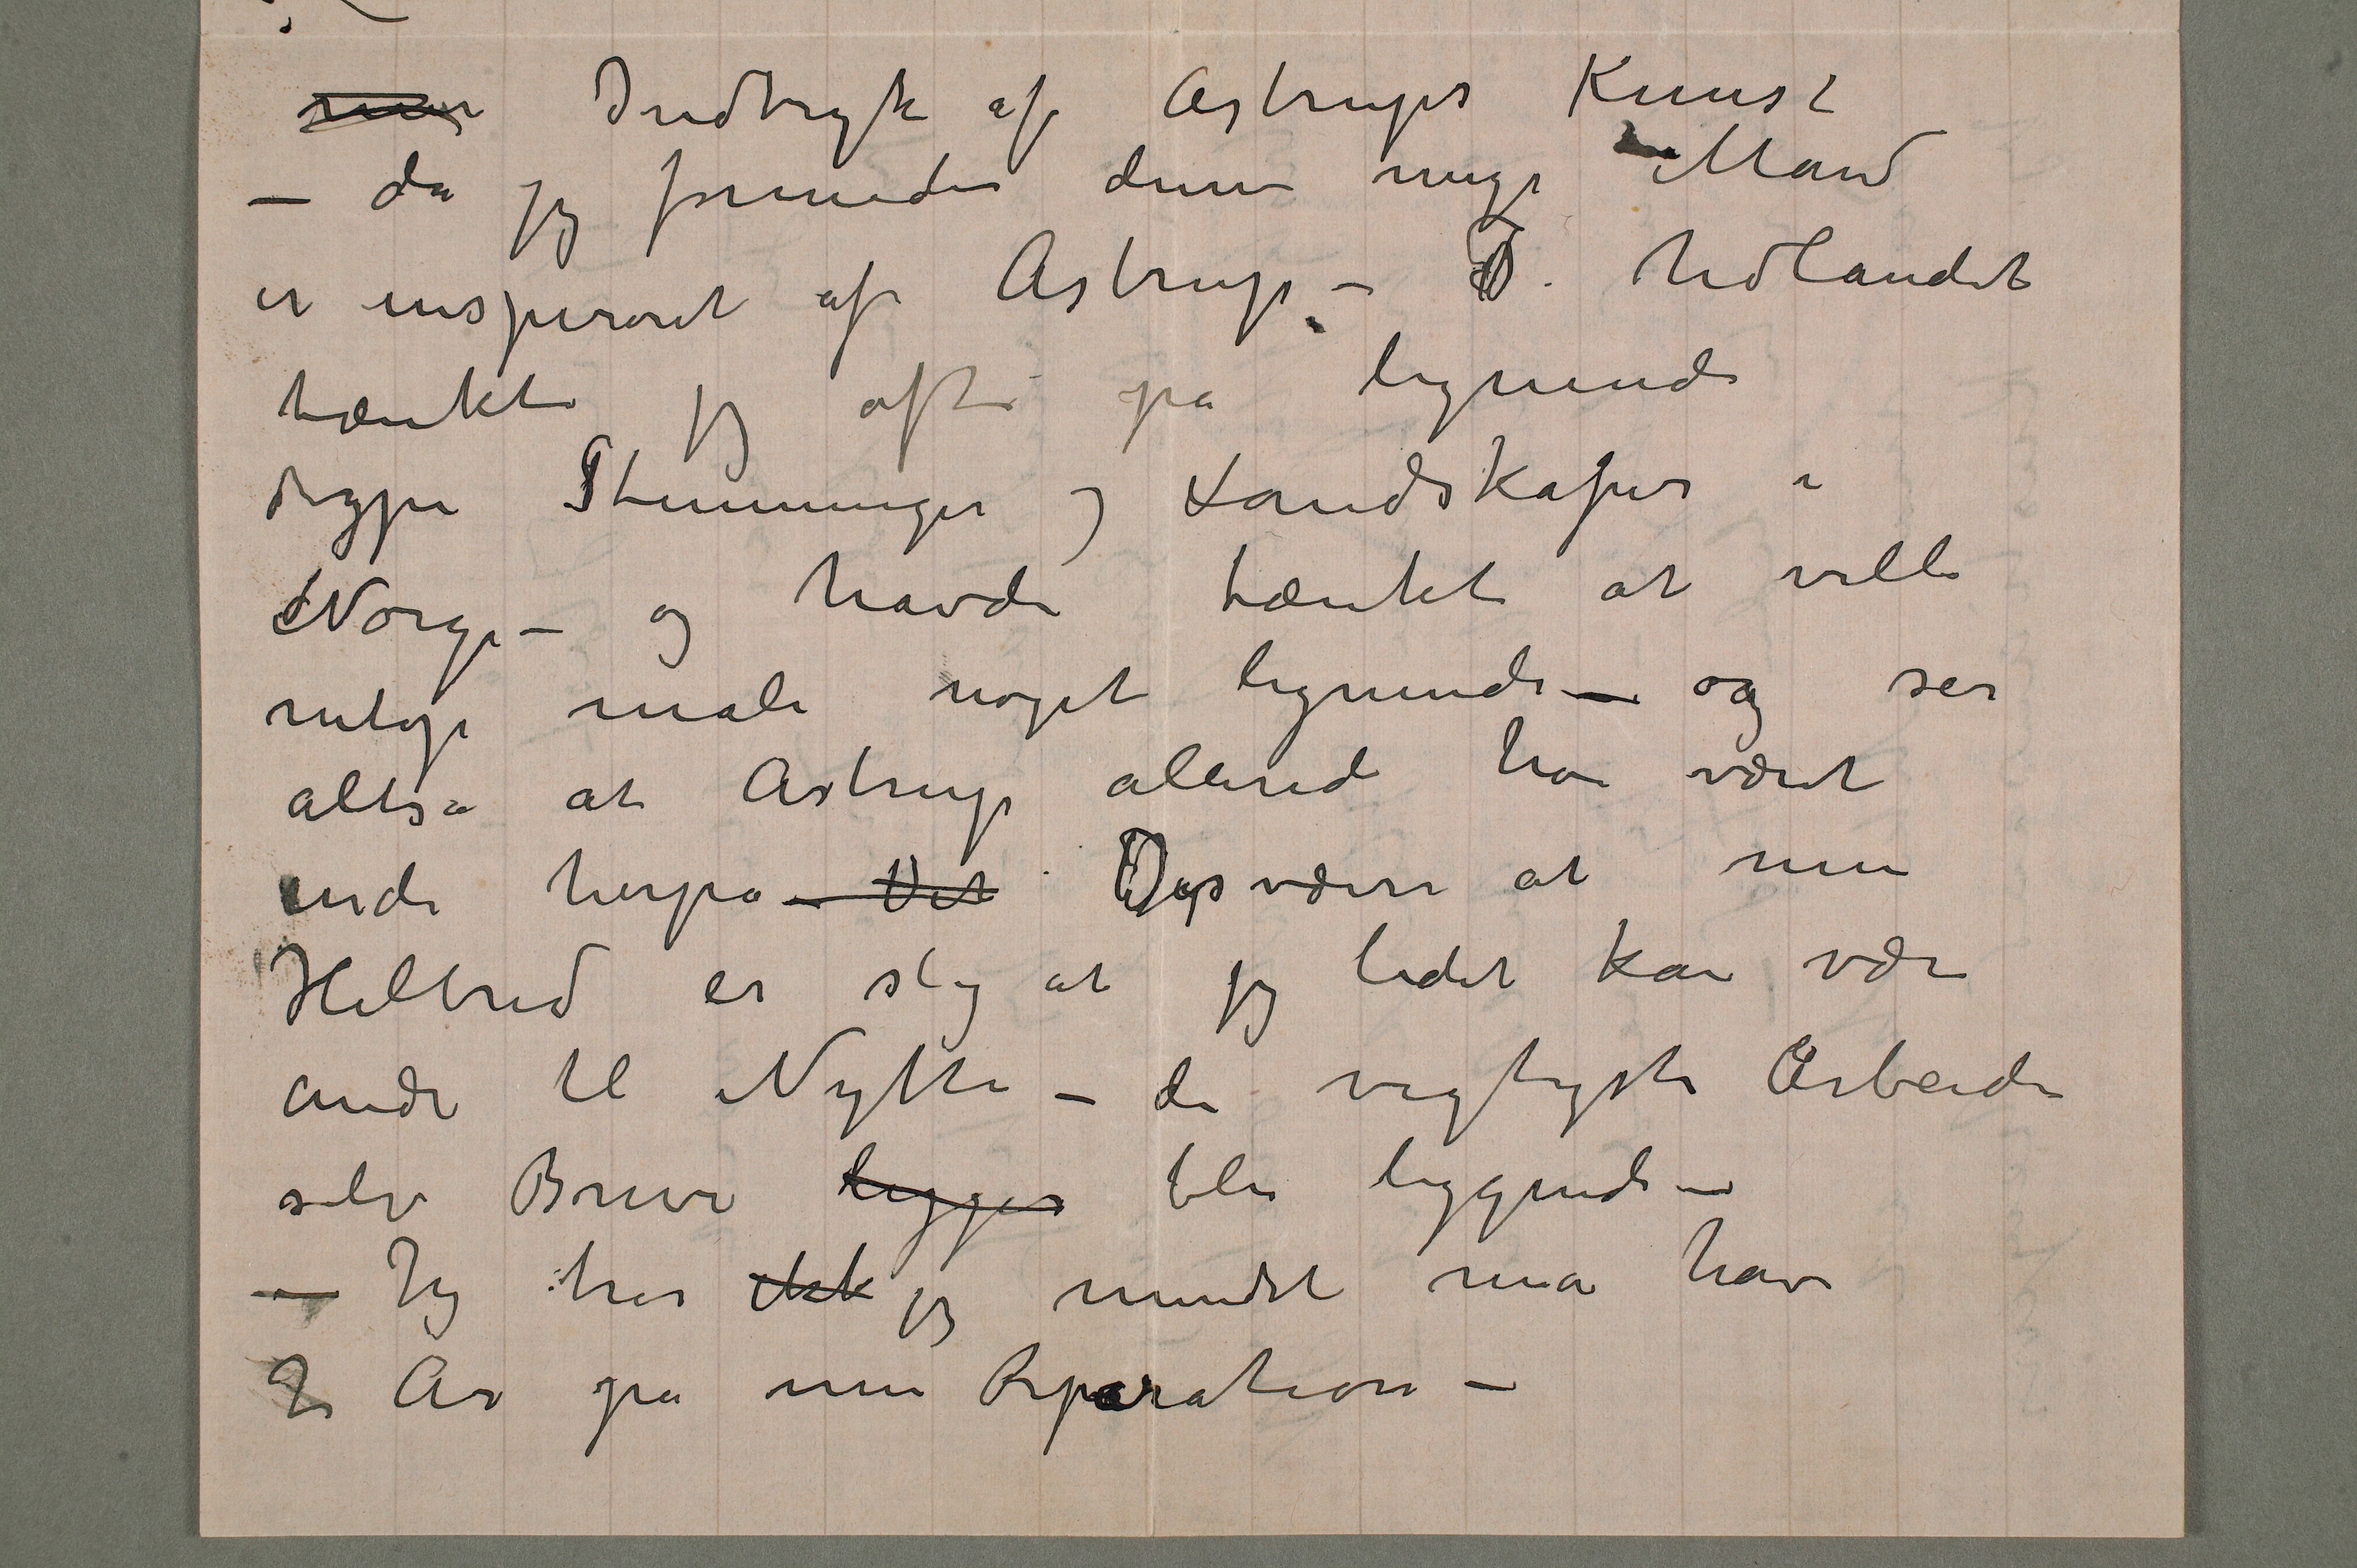 mer Indtryk af Astrups Kunst
– da jeg formoder denne unge Mand
er inspireret af Astrup – I Udlandet
tænkte jeg ofte på lignende
dype Stemninger og Landskaper i
Norge – og havde tænkt at ville
netop male noget lignende – og ser
altså at Astrup allerede har været
inde herpå – Det Desværre at min
Helbred er slig at jeg lidet kan være
andre til Nytte – de vigtigste Arbeider
selv Breve ligger blir liggende –
– Jeg tror ikk jeg mindst må have
2 År på min Reparation –